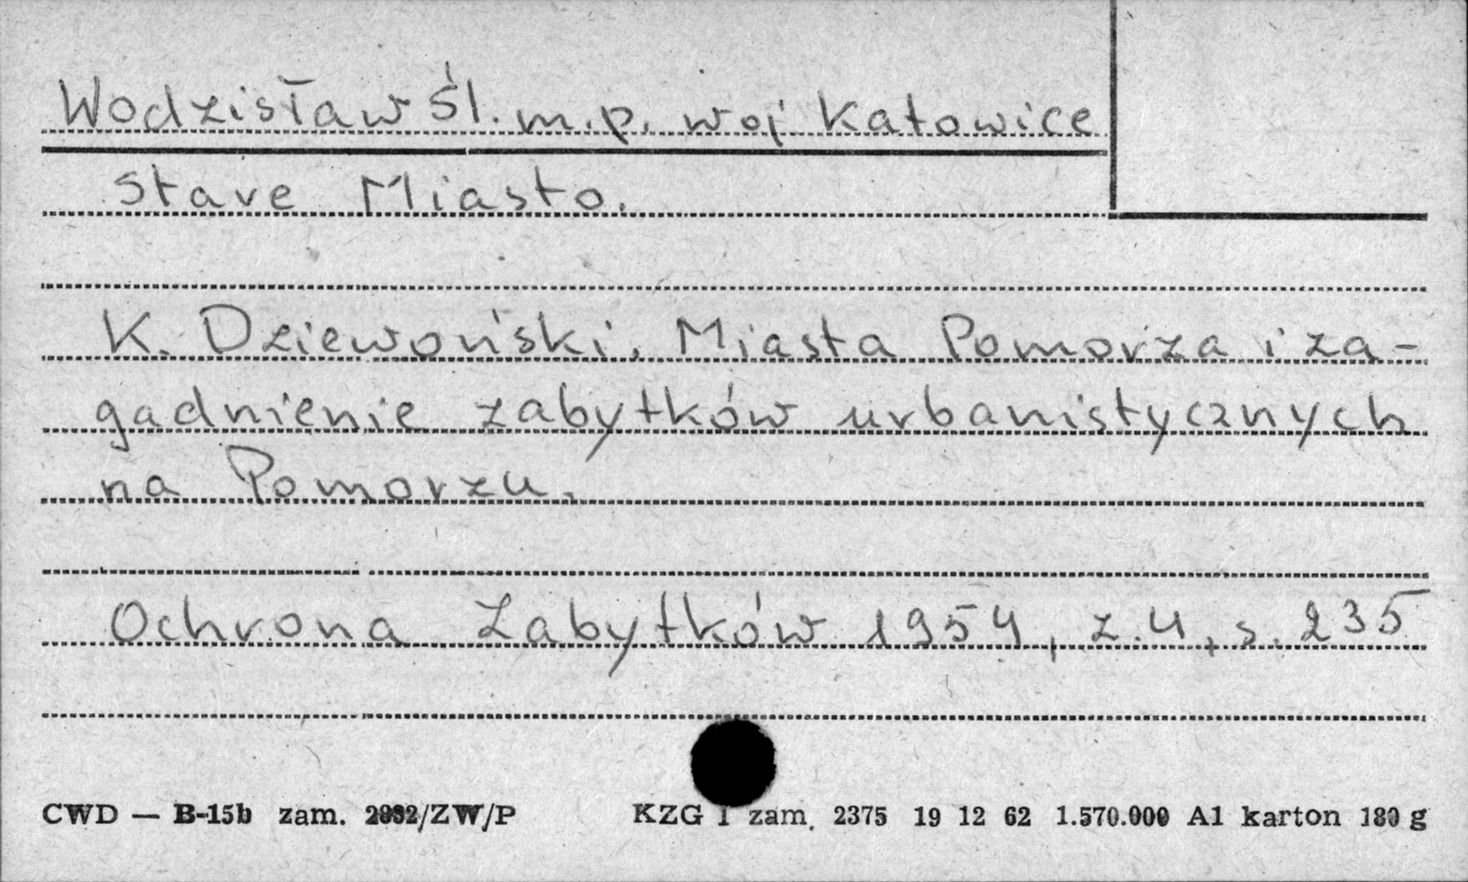 Wodzisław Śl. m.p. woj Katowice
Stare Miasto.
K. Dziewoński, Miasta Pomorza i za-
gadnienie zabytków urbanistycznych
na Pomorzu.
Ochrona Zabytków 1954, z.4, s. 235
CWD — B-15b zam. /ZW/P KZG 1 zam. 2375 19 12 62 1.570.000 A1 karton 180 g